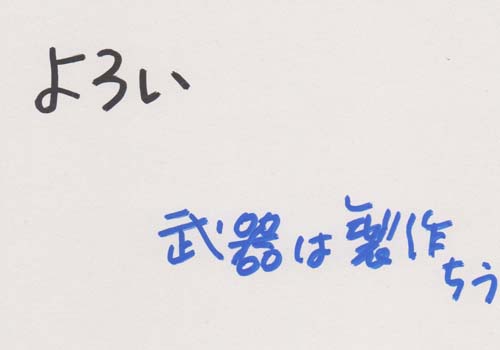 よろい
武器は製作
ちう